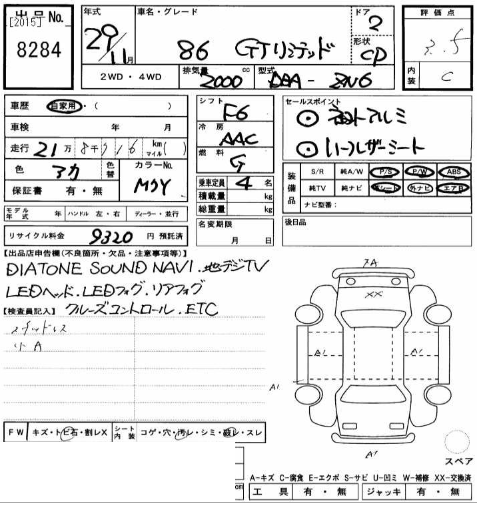 出品No.
[2015]
8284
年式
29年
11月
車名・グレード
86 GTリミテッド
ドア
2
形状
CP
2WD・4WD
排気量
2000 cc
型式
DBA-ZN6
評価点
3.5
内装
C
車歴
自家用・( )
車検 年 月
走行 21万8千716 km(マイル)
色 アカ
色替
カラーNo.
M7Y
保証書 有・無
シフト
F6
冷房
AAC
燃料
G
乗車定員 4名
積載量 kg
総重量 kg
名変期限
月 日
セールスポイント
◎ 純アルミ
◎ ハーフレザーシート
装備品
S/R 純A/W P/S P/W ABS
純TV 純ナビ 革シート 外ナビ エアB
ナビ型番:
後日品
モデル年式 年 ハンドル 左・右 ディーラー・並行
リサイクル料金 9320 円 預託済
【出品店申告欄(不良箇所・欠品・注意事項等)】
DIATONE SOUND NAVI.地デジTV
LEDヘッド.LEDフォグ.リアフォグ
【検査員記入】クルーズコントロール.ETC
スタッドレス
小A
FW キズ・トビ石・割レX シート内装 コゲ・穴・汚レ・シミ・破レ・スレ
7A
XX
A1
A1
A1
A1
スペア
A-キズ C-腐食 E-エクボ S-サビ U-凹ミ W-補修 XX-交換済
工具 有・無 ジャッキ 有・無